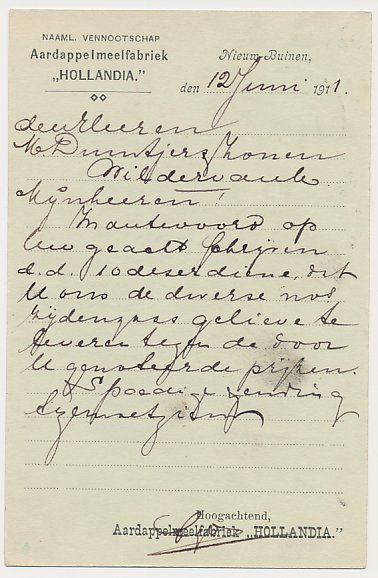 NAAML. VENNOOTSCHAP
Aardappelmeelfabriek
„HOLLANDIA."
Nieuw-Buinen,
den 12 Juni 1911.
den Heeren
M. Duintjer & Zonen
Wildervank
Mijnheeren!
In antwoord op
Uw geacht schrijven
d.d. 10 deser diene, dat
U ons de diverse nos
zijdengaas gelieve te
leveren tegen de door
U genoteerde prijzen.
Spoedige zending
tegemoetziend
Hoogachtend,
Aardappelmeelfabriek „HOLLANDIA."